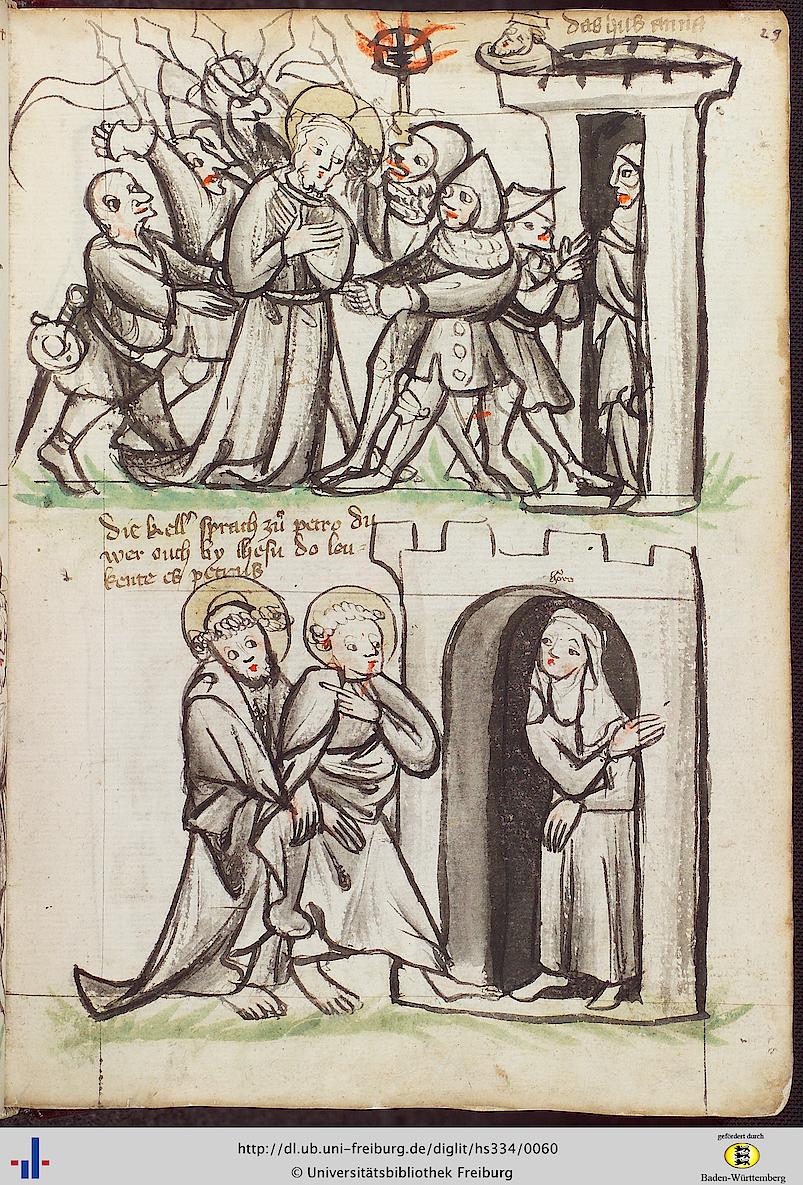 das hus anna
29
die kell' sprach zů petro du
wer ouch by ihesu do lou-
kente es petrus
http://dl.ub.uni-freiburg.de/diglit/hs334/0060
© Universitätsbibliothek Freiburg
gefördert durch
Baden-Württemberg